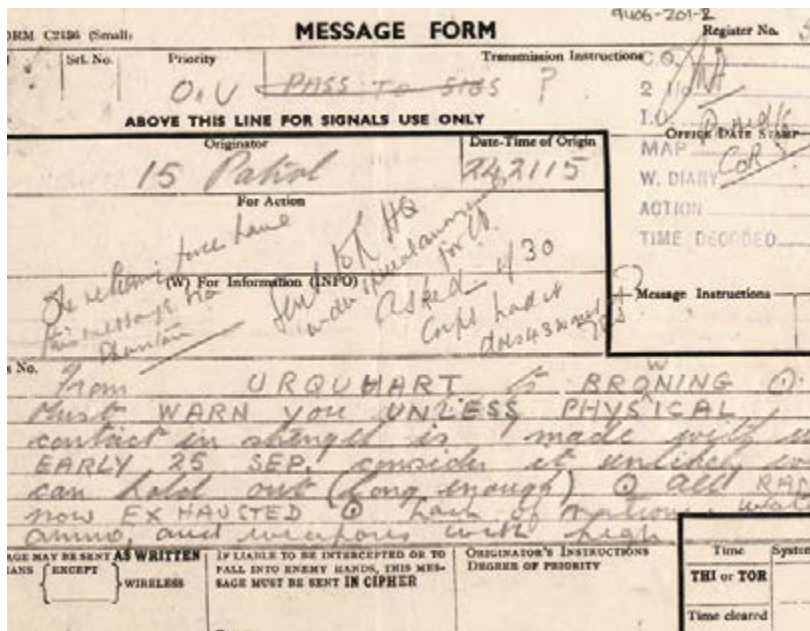 9406-201-2
ORM C2136 (Small)
MESSAGE FORM
Register No.
Srl. No.
Priority
Transmission Instructions
O.U PASS TO SIGS ?
C.O.
2 I/C
I.O.
ABOVE THIS LINE FOR SIGNALS USE ONLY
OFFICE DATE STAMP
Originator
Date-Time of Origin
MAP
15 Patrol
242115
W. DIARY
For Action
ACTION
TIME DECODED
relieving force have
this message via
Phantom
Sent to HQ
under
for
Asked if 30
Corps had it
(W) For Information (INFO)
Message Instructions
s No.
From URQUHART to BROWNING
Must WARN you UNLESS PHYSICAL
contact in strength is made with
EARLY 25 SEP. consider it unlikely
can hold out (long enough) all
now EXHAUSTED Lack of rations
ammo, and weapons with high
AGE MAY BE SENT AS WRITTEN
EANS EXCEPT
WIRELESS
IF LIABLE TO BE INTERCEPTED OR TO
FALL INTO ENEMY HANDS, THIS MES-
SAGE MUST BE SENT IN CIPHER
ORIGINATOR'S INSTRUCTIONS
DEGREE OF PRIORITY
Time
System
THI or TOR
Time cleared